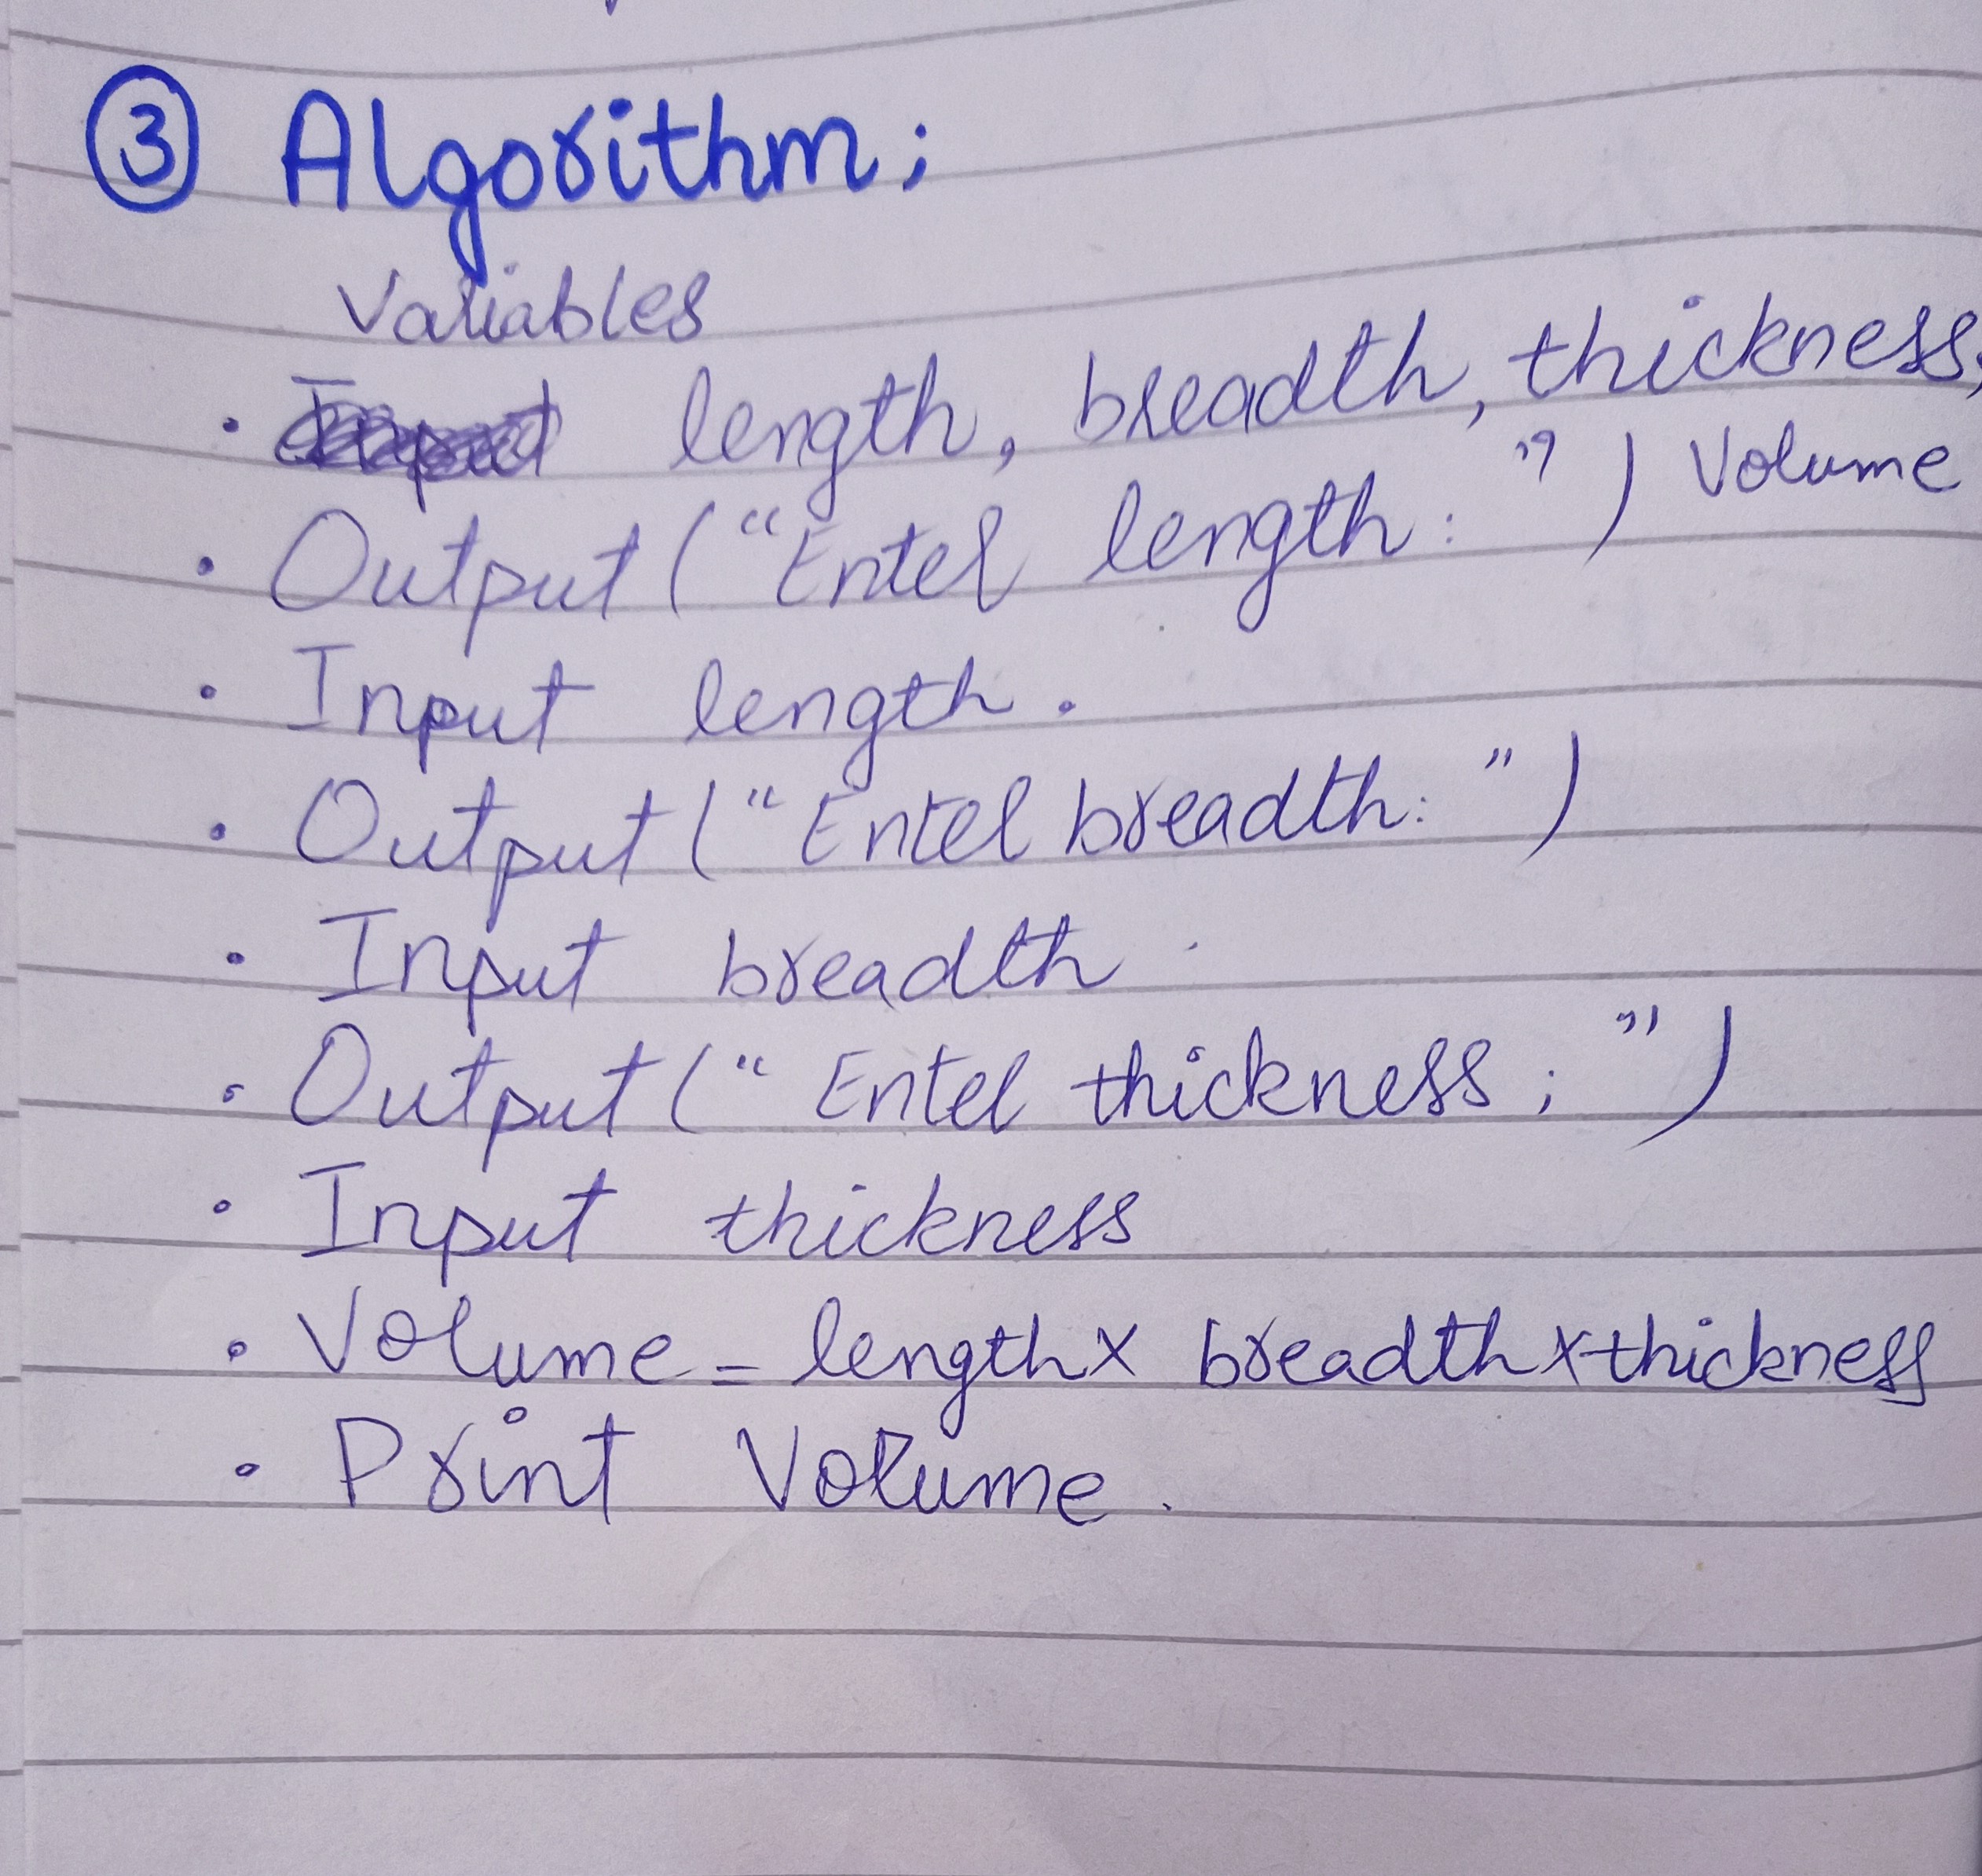 ③ Algorithm;
Variables
• length, breadth, thickness,
Volume
• Output ("Enter length: ")
• Input length.
• Output ("Enter breadth: ")
• Input breadth
• Output (" Enter thickness ; ")
• Input thickness
• Volume = length x breadth x thickness
• Print Volume.